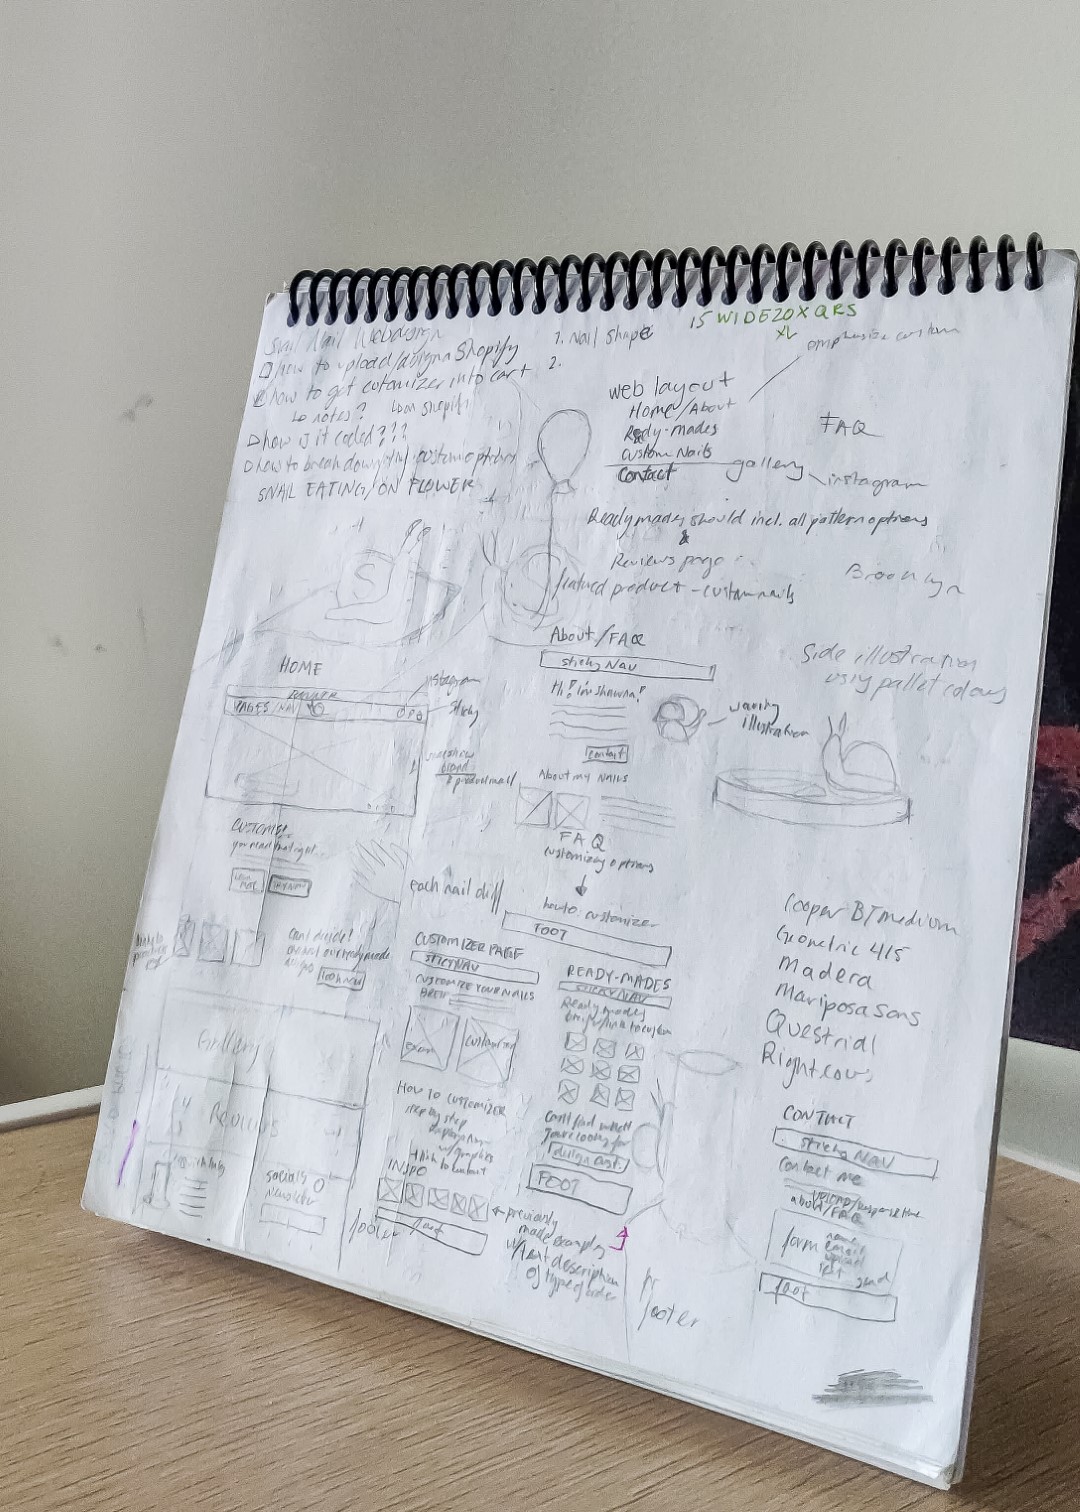 Snail Nail Webdesign
how to upload/design Shopify
how to get cutomizer into cart
notes? from shopify
how is it coded???
how to break down my customic options
SNAIL EATING/ON FLOWER
1. Nail Shape
2.
15 WIDE 20X QRS
XL
emphasize custom
web layout
Home/About
Ready-mades
Custom Nails
Contact
gallery
instagram
FAQ
Readymades should incl. all pattern options
&
Reviews page
featured product - custom nails
Brooklyn
S
HOME
BANNER
PAGES/NAV
instagram
sticky
slideshow
& product mall
CUSTOMISE
BUY NOW
each nail diff
Can't decide?
LOOK NOW
Gallery
Reviews
socials
newsletter
footer
About/FAQ
sticky NAV
Hi! im Shawna!
waving
illustration
contact
About my NAILS
FAQ
customizing options
how to customizer
FOOT
Side illustration
using pallet colours
CUSTOMIZER PAGE
STICKY NAV
CUSTOMIZE YOUR NAILS
BRIEF
exam
customizer
HOW TO CUSTOMIZER
step by step
w/graphics
INSPO
foot
previously
made examples
w/text description
of type of order
READY-MADES
STICKY NAV
Ready mades
brief/link to custom
Cant find what
your looking for
design cust.
FOOT
for
footer
Cooper BT medium
Geometric 415
Madera
Mariposa Sans
Questrial
Righteous
CONTACT
sticky NAV
Contact me
about/FAQ
form
name
email
upload
text
send
foot